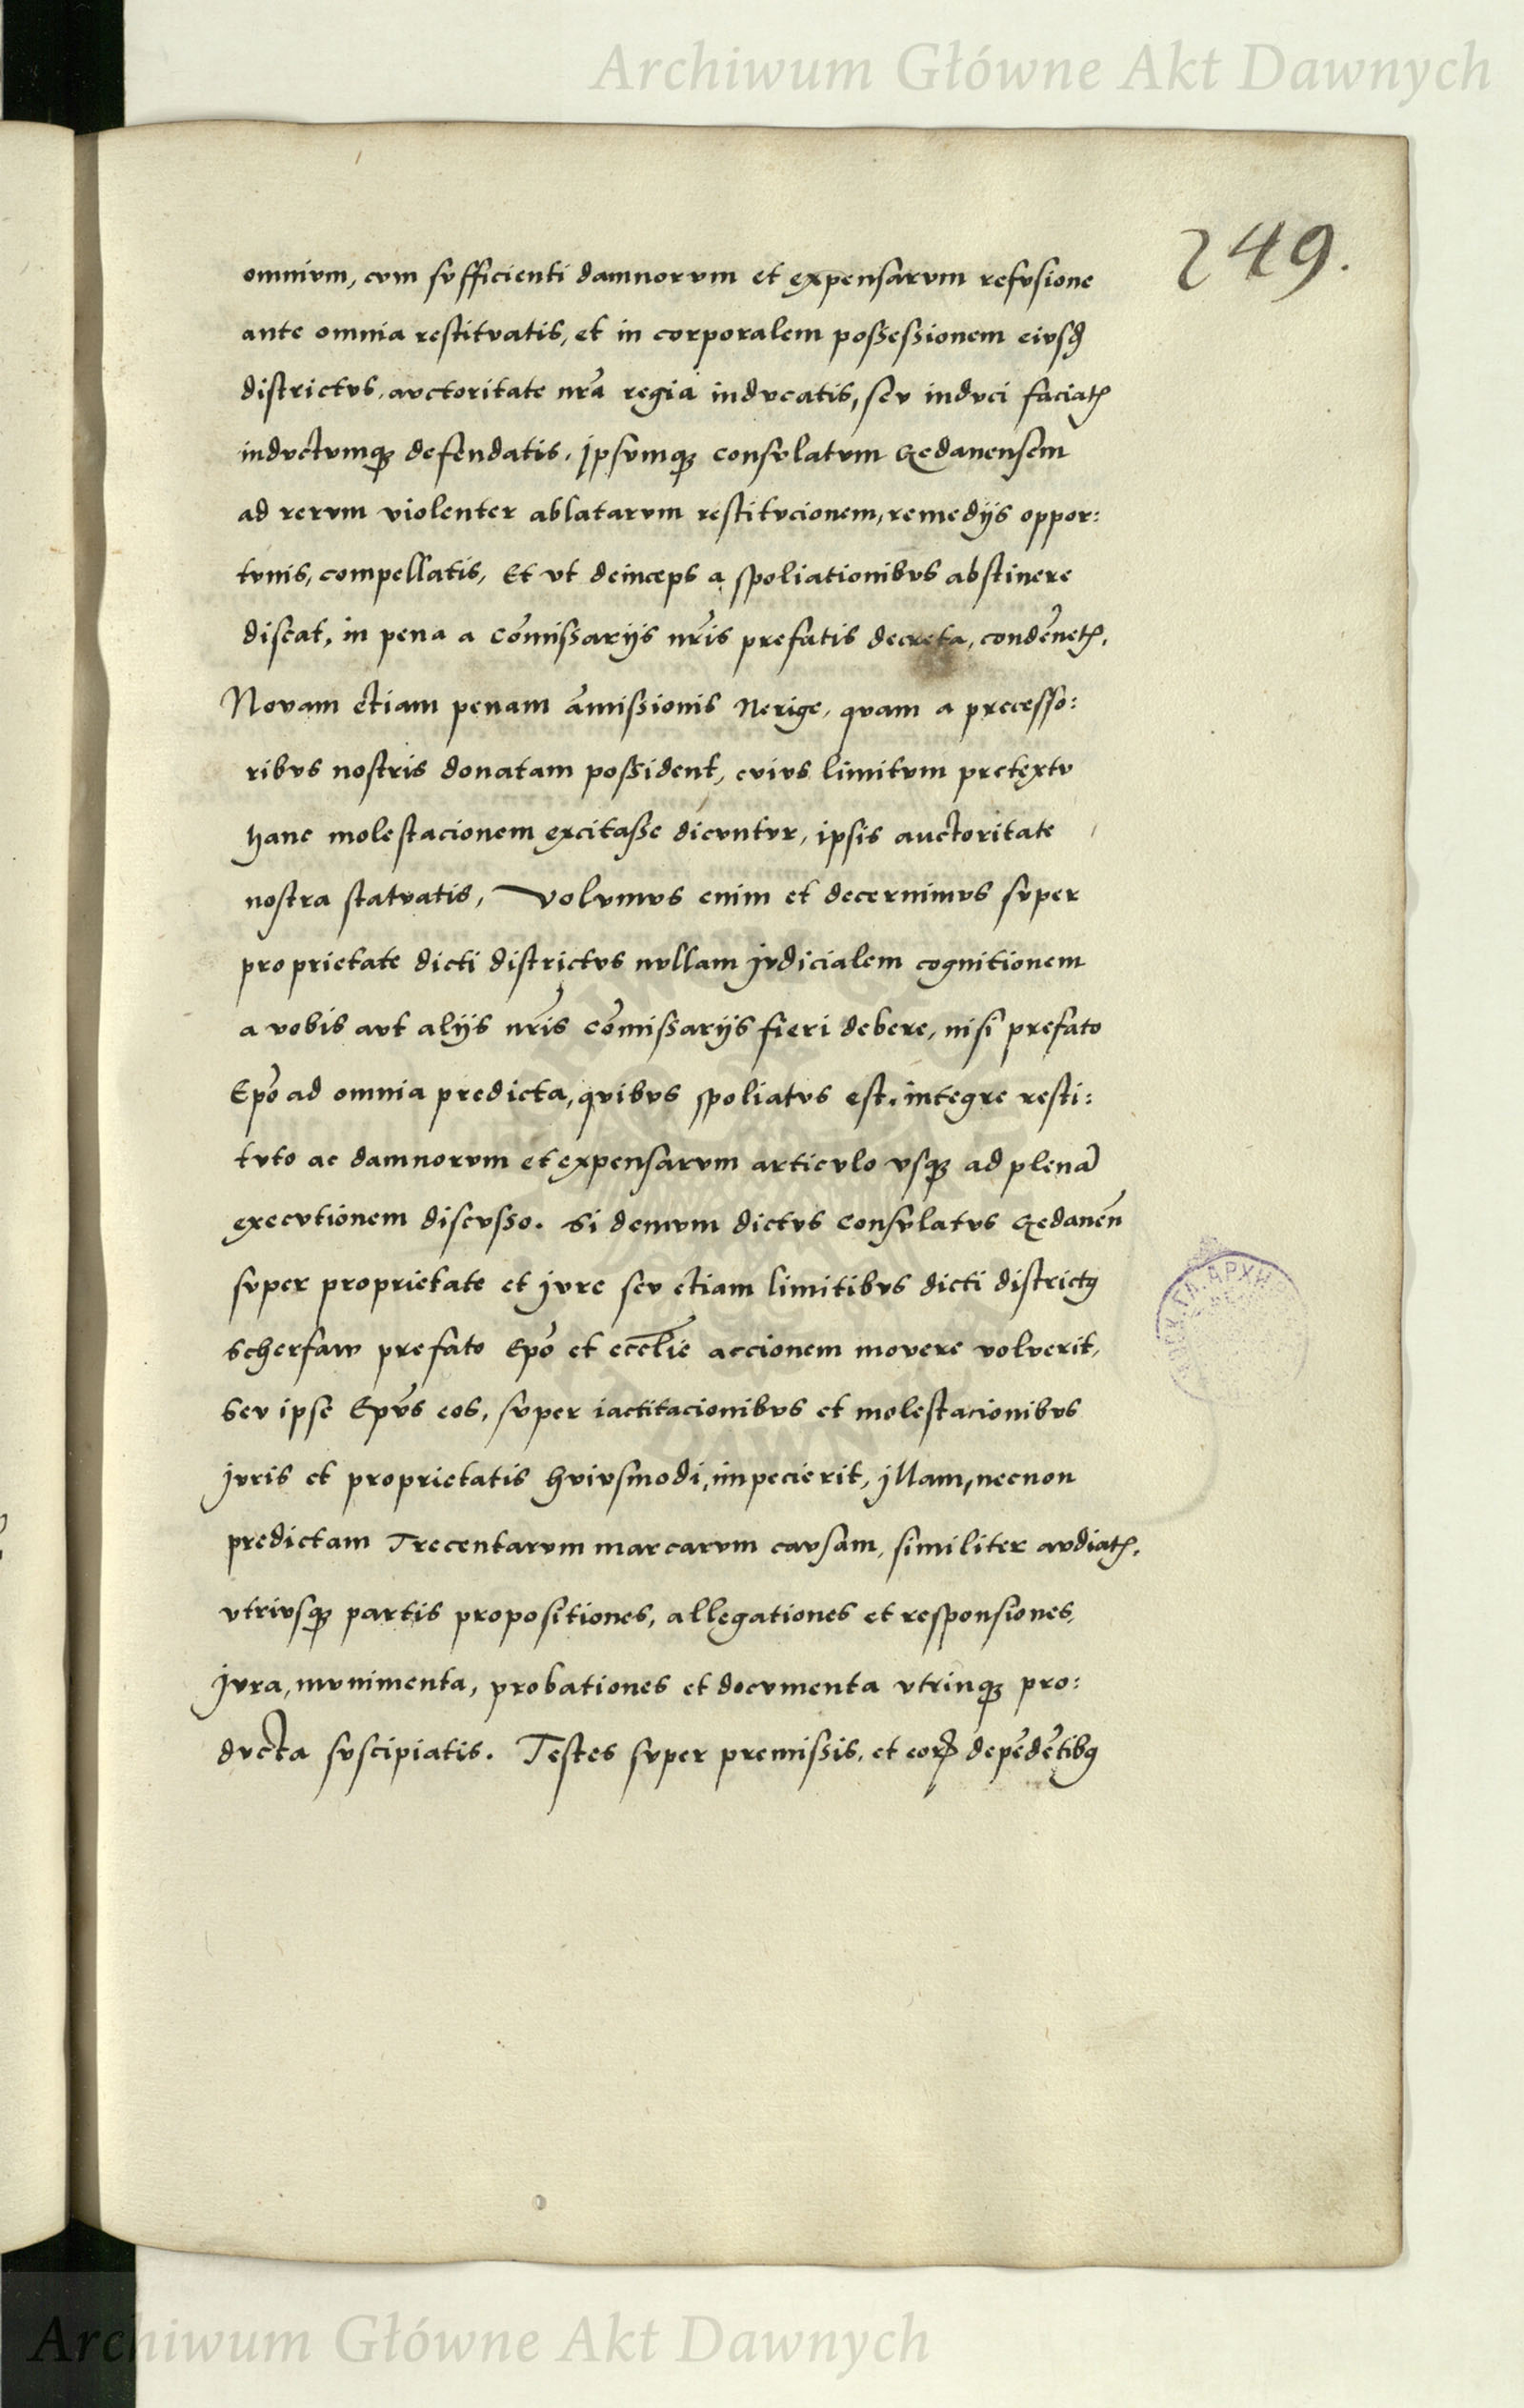 Archiwum Główne Akt Dawnych
249.
omnivm, cvm svfficienti damnorvm et expensarvm refvsione
ante omnia restitvatis, et in corporalem possessionem eivsꝺ
districtvs, avctoritate nr̃a regia indvcatis, sev indvci faciatꝭ
indvctvmqꝫ defendatis. Ipsvmqꝫ consvlatvm Gedanensem
ad rervm violenter ablatarvm restitvcionem, remedijs oppor:
tvnis, compellatis, Et vt deinceps a spoliationibvs abstinere
discat, in pena a com̃issarijs nr̃is prefatis decreta, condem̃netꝭ,
Novam etiam penam am̃issionis Nerige, qvam a precesso:
ribvs nostris donatam possident, cvivs limitvm pretextv
hanc molestacionem excitasse dicvntvr, ipsis avctoritate
nostra statvatis, Volvmvs enim et decernimvs svper
proprietate dicti districtvs nvllam jvdicialem cognitionem
a vobis avt alijs nr̃is com̃issarijs fieri debere, nisi prefato
Ep̃o ad omnia predicta, qvibvs spoliatvs est, integre resti:
tvto ac damnorvm et expensarvm articvlo vsqꝫ ad plenã
execvtionem discvsso. Si demvm dictvs consvlatvs Gedaneñ
svper proprietate et jvre sev etiam limitibvs dicti districtꝰ
Scherfaw prefato Ep̃o et eccl̃ie accionem movere volverit,
Sev ipse Ep̃vs eos, svper iactitacionibvs et molestacionibvs
jvris et proprietatis hvivsmodi, impecierit, jllam, necnon
predictam Trecentarvm marcarvm cavsam, similiter avdiatꝭ,
vtrivsqꝫ partis propositiones, allegationes et responsiones,
jvra, mvnimenta, probationes et docvmenta vtrinqꝫ pro:
dvcta svscipiatis. Testes svper premissis, et eoꝝ depẽdẽtibꝰ
Archiwum Główne Akt Dawnych